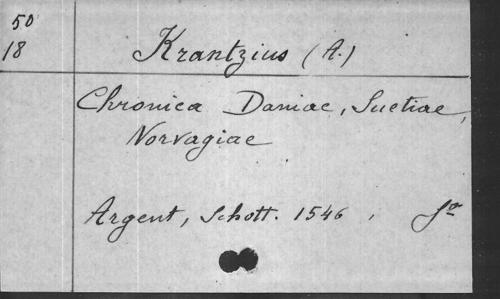 50
18
Krantzius (A.)
Chronica Daniae, Suetiae,
Norvagiae
Argent, Schott. 1546, fo